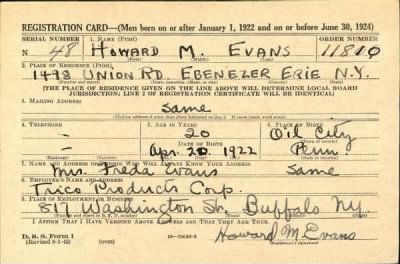 REGISTRATION CARD—(Men born on or after January 1, 1922 and on or before June 30, 1924)
SERIAL NUMBER 1. NAME (Print) ORDER NUMBER
N 48 Howard M. Evans 11810
2. PLACE OF RESIDENCE (Print)
1498 UNION RD. EBENEZER ERIE N.Y.
(Number and street) (Town, township, village, or city) (County) (State)
[THE PLACE OF RESIDENCE GIVEN ON THE LINE ABOVE WILL DETERMINE LOCAL BOARD
JURISDICTION; LINE 2 OF REGISTRATION CERTIFICATE WILL BE IDENTICAL]
3. MAILING ADDRESS
Same
4. TELEPHONE 5. AGE IN YEARS 6. PLACE OF BIRTH
- 20 Oil City
DATE OF BIRTH
- Apr. 20 1922 Penn.
(Exchange) (Number) (Mo.) (Day) (Yr.) (State or country)
7. NAME AND ADDRESS OF PERSON WHO WILL ALWAYS KNOW YOUR ADDRESS
Mrs. Freda Evans Same
8. EMPLOYER'S NAME AND ADDRESS
Trico Products Corp.
9. PLACE OF EMPLOYMENT OR BUSINESS
817 Washington St. Buffalo NY
(Number and street or R. F. D. number) (Town) (County) (State)
I AFFIRM THAT I HAVE VERIFIED ABOVE ANSWERS AND THAT THEY ARE TRUE.
D. S. S. Form 1
(over) Howard M. Evans